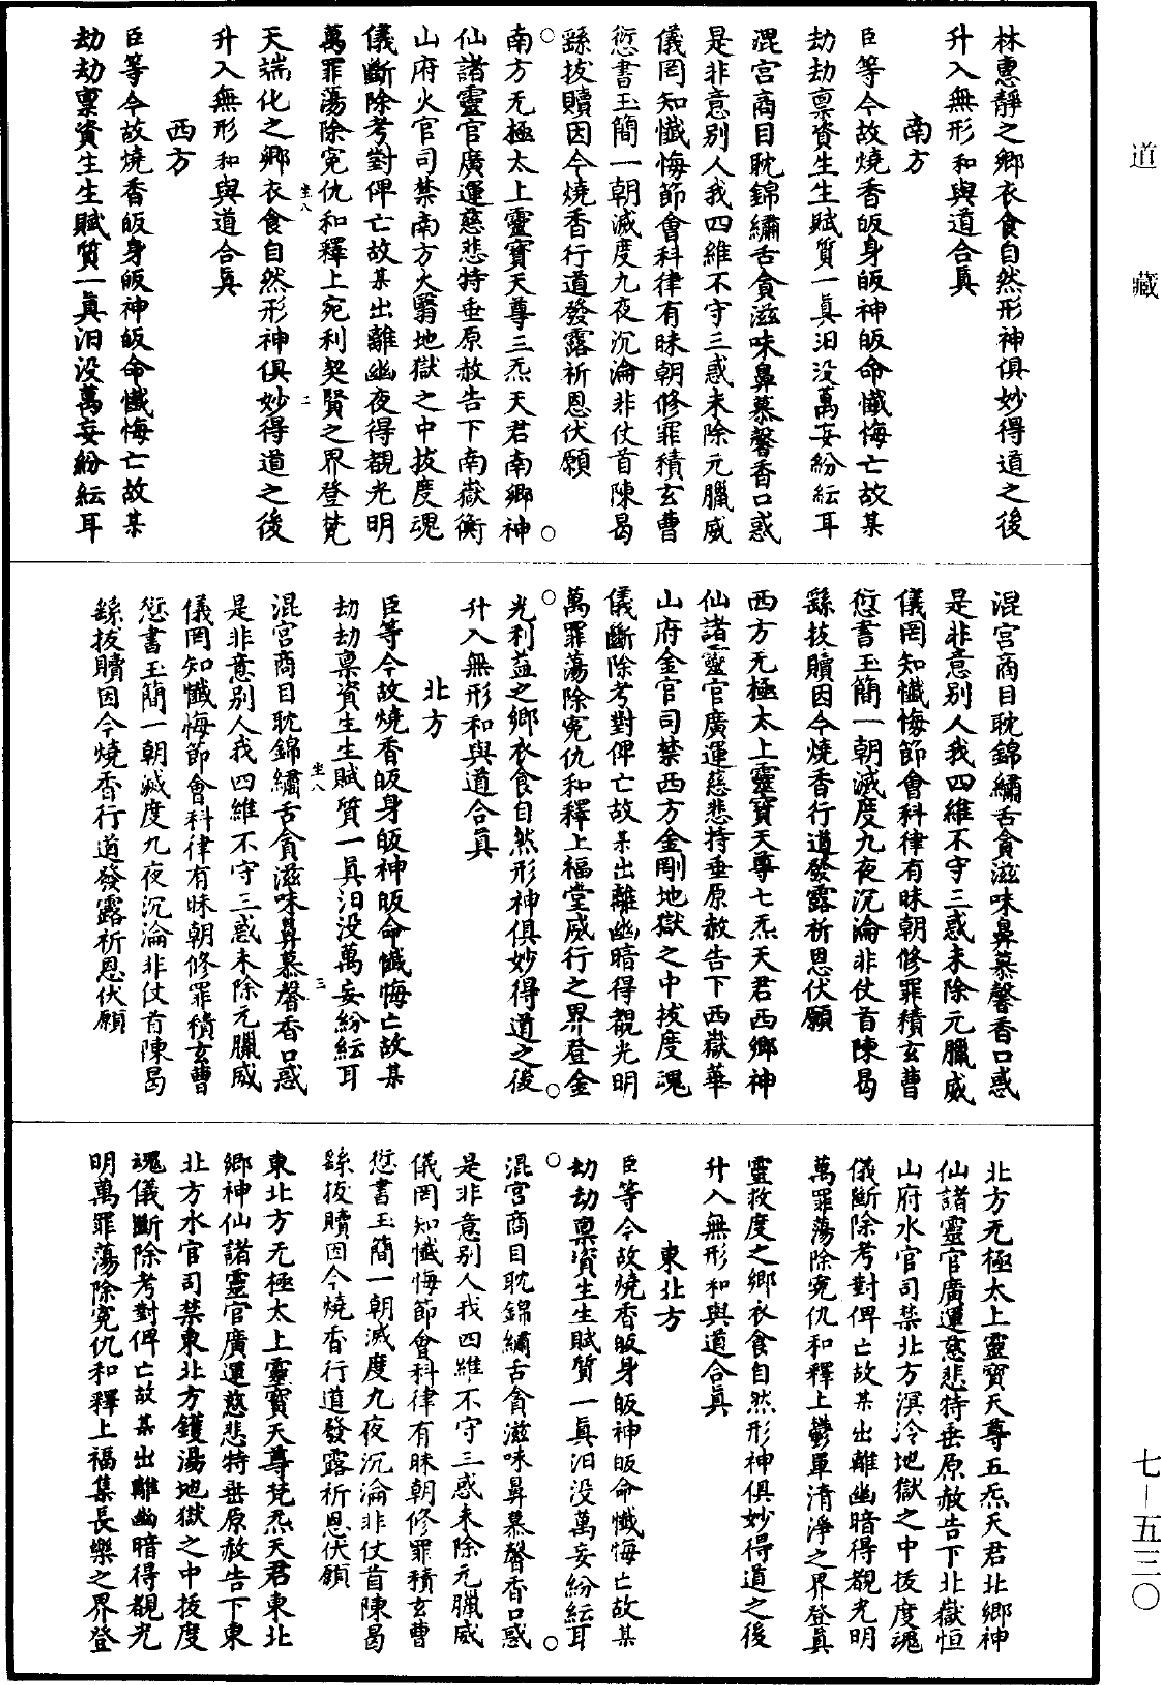 林惠靜之鄉衣食自然形神俱妙得道之後
升入無形和與道合真
南方
臣等今故燒香皈身皈神皈命懺悔亡故某
劫劫禀資生生賦質一真汨没萬妄紛紜耳
混宫商目耽錦繡舌貪滋味鼻慕馨香口惑
是非意别人我四維不守三惑未除元臘威
儀罔知懺悔節會科律有昧朝修罪積玄曹
愆書玉簡一朝滅度九夜沉淪非仗首陳曷
繇拔贖因今燒香行道發露祈恩伏願
南方无極太上靈寶天尊三炁天君南鄉神
仙諸靈官廣運慈悲特垂原赦告下南嶽衡
山府火官司禁南方火翳地獄之中拔度魂
儀斷除考對俾亡故某出離幽夜得覩光明
萬罪蕩除冤仇和釋上宛利契賢之界登梵
坐八 二
天端化之鄉衣食自然形神俱妙得道之後
升入無形和與道合真
西方
臣等今故燒香皈身皈神皈命懺悔亡故某
劫劫禀資生生賦質一真汨没萬妄紛紜耳
混宫商目耽錦繡舌貪滋味鼻慕馨香口惑
是非意别人我四維不守三惑未除元臘威
儀罔知懺悔節會科律有昧朝修罪積玄曹
愆書玉簡一朝滅度九夜沉淪非仗首陳曷
繇拔贖因今燒香行道發露祈恩伏願
西方无極太上靈寶天尊七炁天君西鄉神
仙諸靈官廣運慈悲特垂原赦告下西嶽華
山府金官司禁西方金剛地獄之中拔度魂
儀斷除考對俾亡故某出離幽暗得覩光明
萬罪蕩除冤仇和釋上福堂咸行之界登金
光利益之鄉衣食自然形神俱妙得道之後
升入無形和與道合真
北方
臣等今故燒香皈身皈神皈命懺悔亡故某
劫劫禀資生生賦質一真汨没萬妄紛紜耳
坐八 三
混宫商目耽錦繡舌貪滋味鼻慕馨香口惑
是非意别人我四維不守三惑未除元臘威
儀罔知懺悔節會科律有昧朝修罪積玄曹
愆書玉簡一朝滅度九夜沉淪非仗首陳曷
繇拔贖因今燒香行道發露祈恩伏願
北方无極太上靈寶天尊五炁天君北鄉神
仙諸靈官廣運慈悲特垂原赦告下北嶽恒
山府水官司禁北方溟泠地獄之中拔度魂
儀斷除考對俾亡故某出離幽暗得覩光明
萬罪蕩除冤仇和釋上鬱單清淨之界登真
靈救度之鄉衣食自然形神俱妙得道之後
升入無形和與道合真
東北方
臣等今故燒香皈身皈神皈命懺悔亡故某
劫劫禀資生生賦質一真汨没萬妄紛紜耳
混宫商目耽錦繡舌貪滋味鼻慕馨香口惑
是非意别人我四維不守三惑未除元臘威
儀罔知懺悔節會科律有昧朝修罪積玄曹
愆書玉簡一朝滅度九夜沉淪非仗首陳曷
繇拔贖因今燒香行道發露祈恩伏願
東北方无極太上靈寶天尊梵炁天君東北
鄉神仙諸靈官廣運慈悲特垂原赦告下東
北方水官司禁東北方鑊湯地獄之中拔度
魂儀斷除考對俾亡故某出離幽暗得覩光
明萬罪蕩除冤仇和釋上福集長樂之界登
道藏
七—五三〇